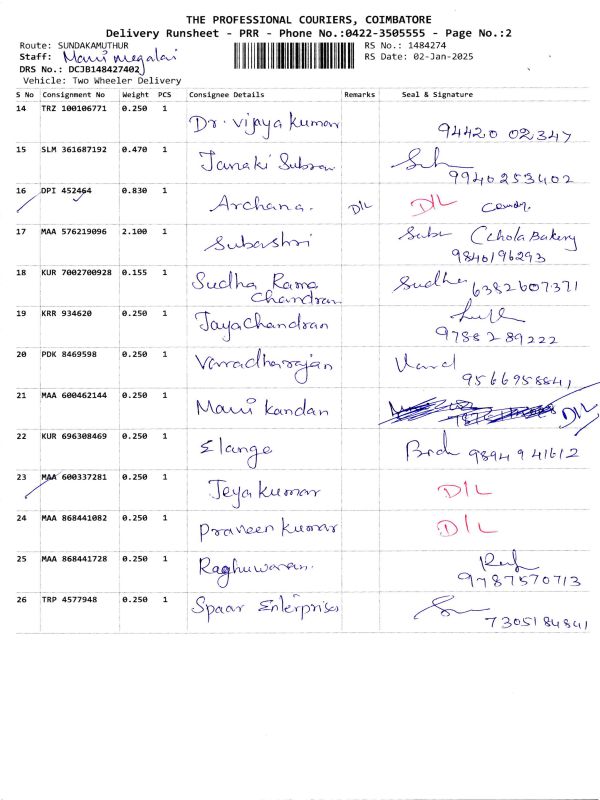 THE PROFESSIONAL COURIERS, COIMBATORE
Delivery Runsheet - PRR - Phone No.:0422-3505555 - Page No.:2
Route: SUNDAKAMUTHUR RS No.: 1484274
Staff: Mani megalai RS Date: 02-Jan-2025
DRS No.: DCJB148427402
Vehicle: Two Wheeler Delivery
S No Consignment No Weight PCS Consignee Details Remarks Seal & Signature
14 TRZ 100106771 0.250 1 Dr. vijaya kumar 94420 02347
15 SLM 361687192 0.470 1 Janaki Subran 9940253402
16 DPI 452464 0.830 1 Archana. D/L D/L
17 MAA 576219096 2.100 1 Subashri Subi Chola Bakery
9840196293
18 KUR 7002700928 0.155 1 Sudha Rama Chandran Sudha 6382607371
19 KRR 934620 0.250 1 JayaChandran 97882 89222
20 PDK 8469598 0.250 1 Varradharajan Vard
9566958841
21 MAA 600462144 0.250 1 Mani kandan D/L
22 KUR 696308469 0.250 1 Elange 98949 41612
23 MAA 600337281 0.250 1 Jeya kumar D/L
24 MAA 868441082 0.250 1 Praveen kumar D/L
25 MAA 868441728 0.250 1 Raghuwaran. 9787570713
26 TRP 4577948 0.250 1 Spaar Enterprises 7305184841